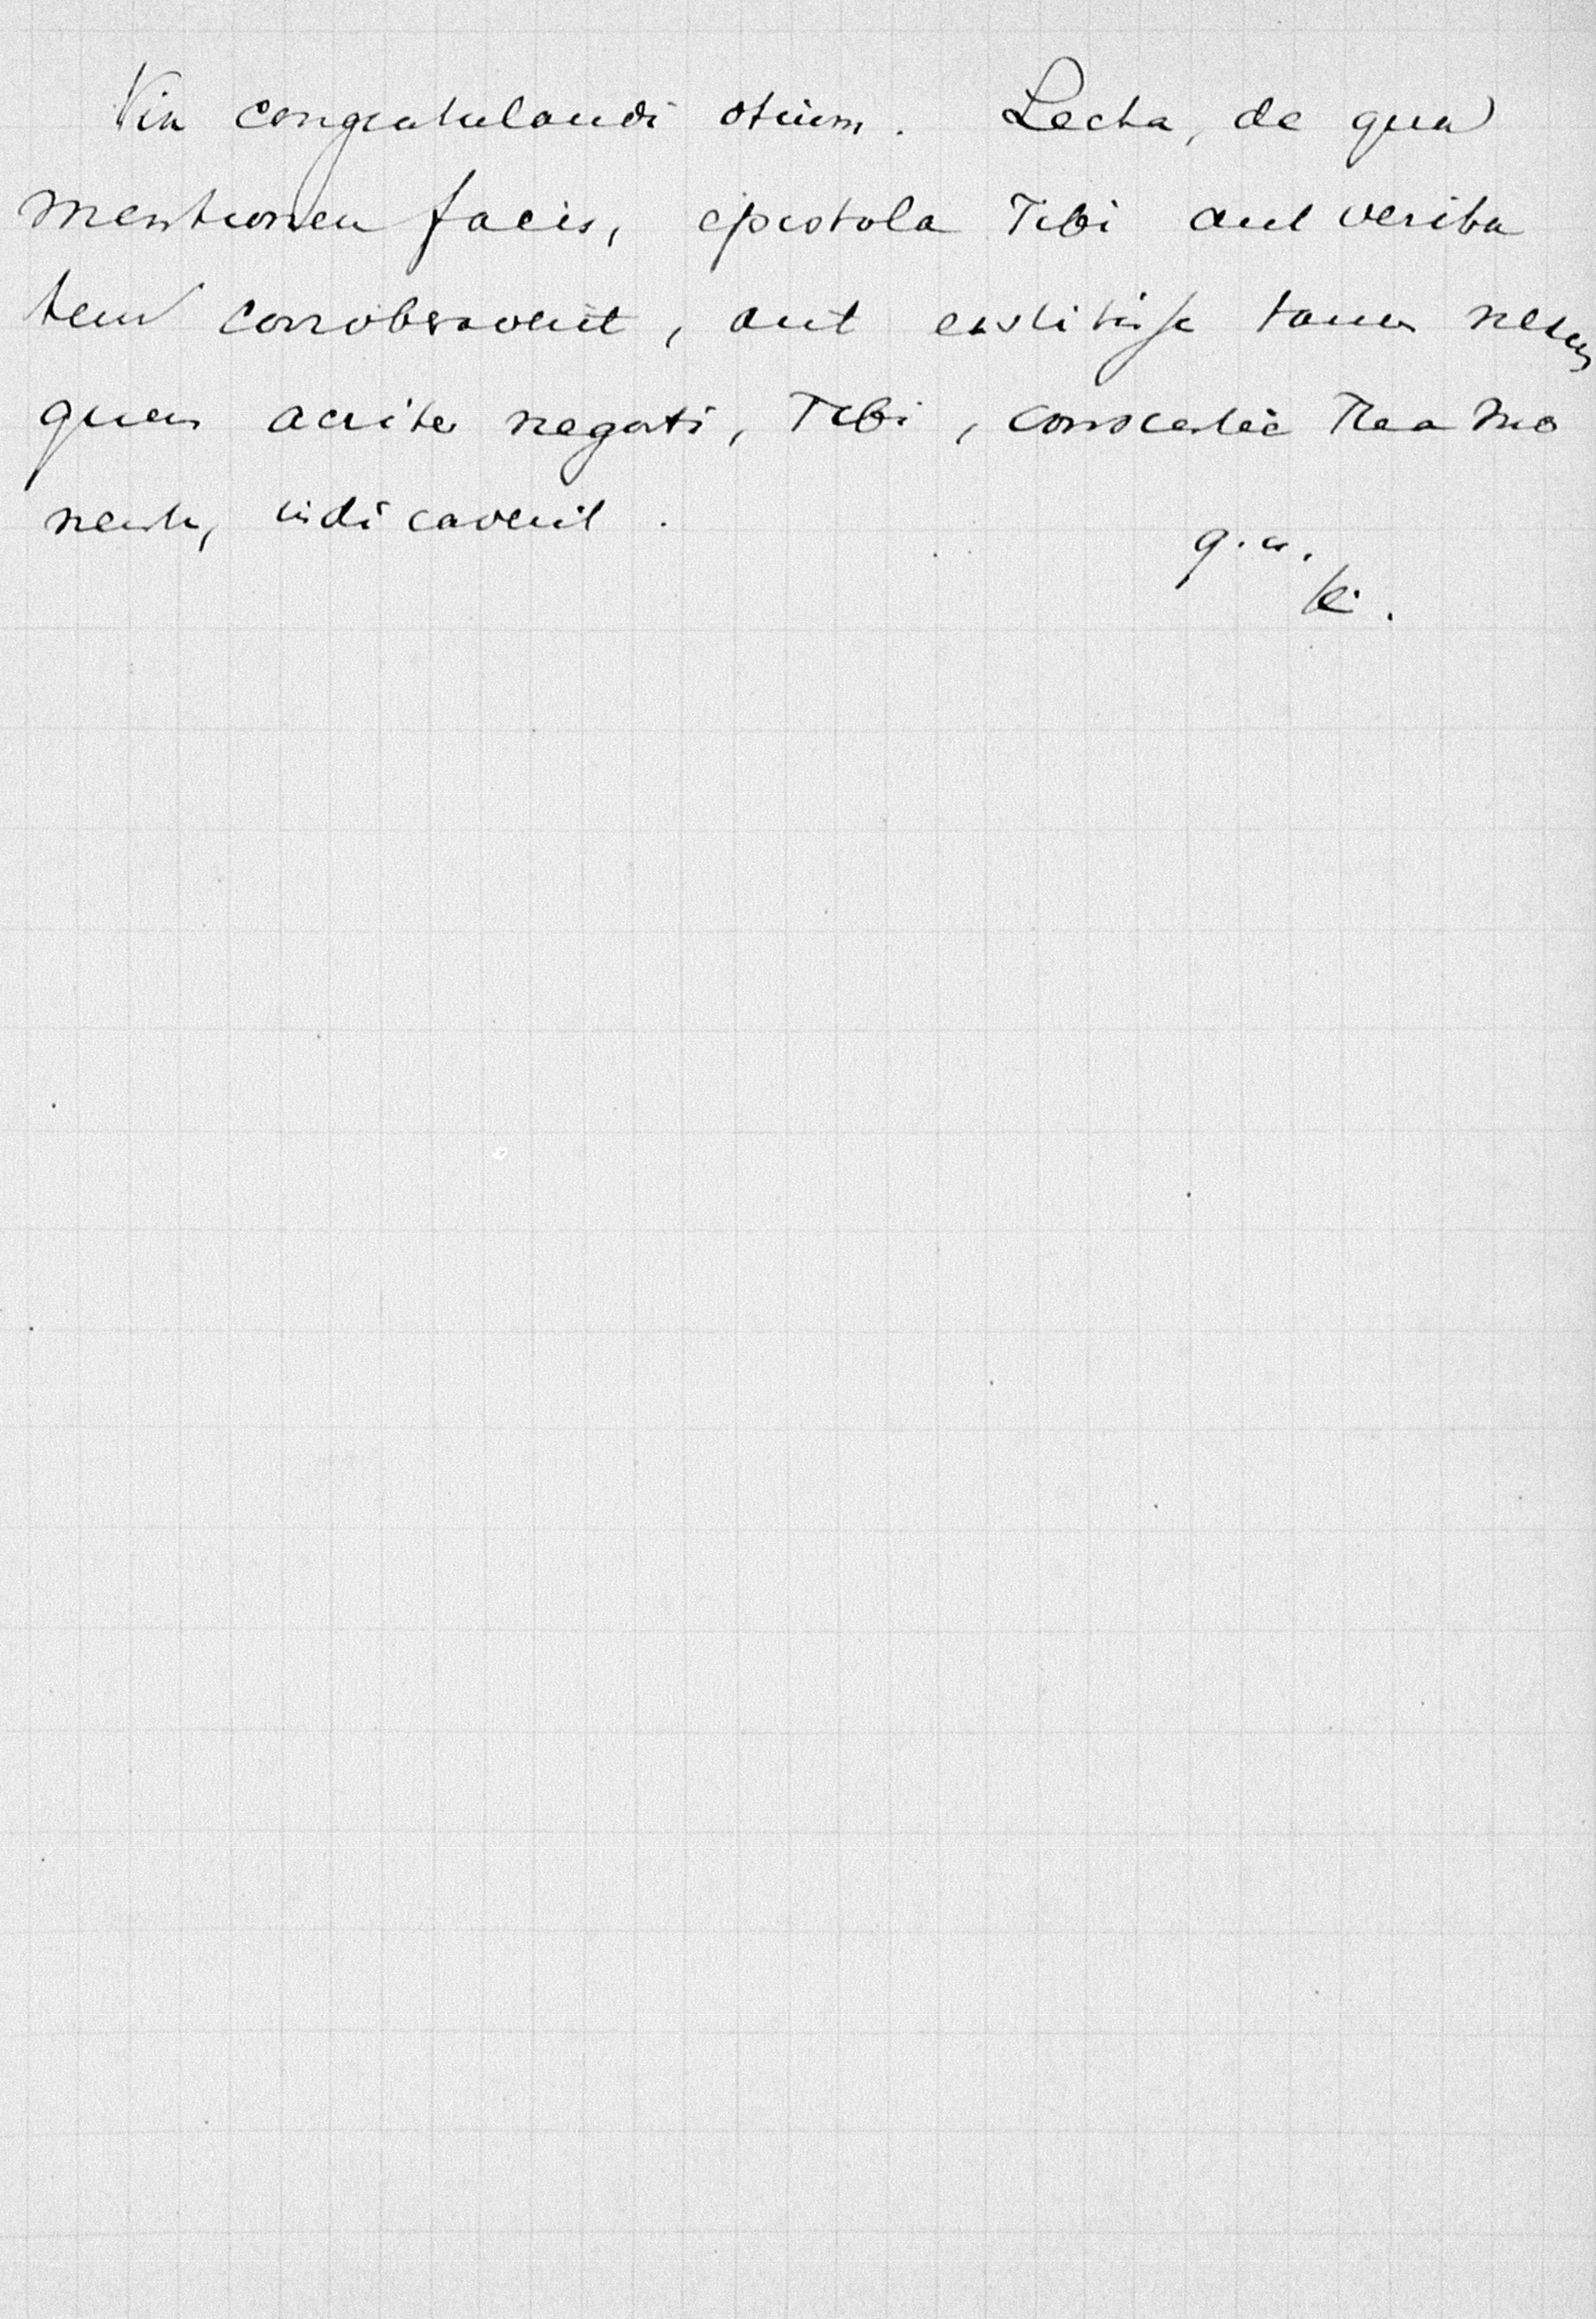 Vix congratulandi otium. Lecta, de qua
mentionem facis, epistola Tibi aut verita
tem corroboraverit, aut exstitisse tamen nexum
quem acriter negasti, Tibi, conscientia Tua mo
nente, indicaverit.
q. a.
K.